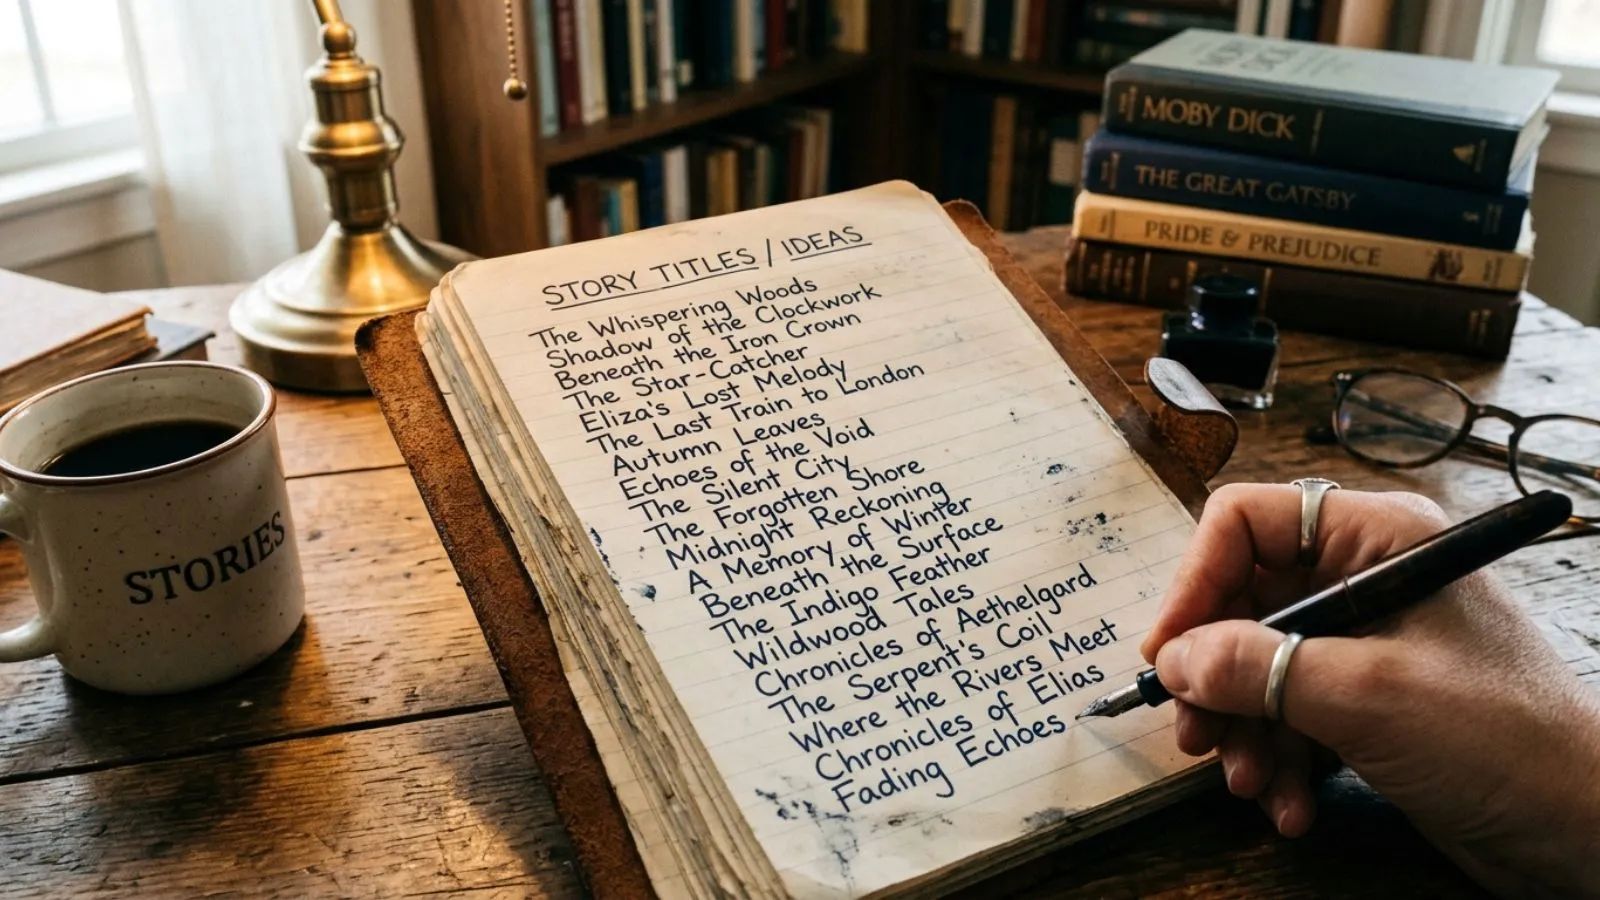 STORY TITLES / IDEAS
The Whispering Woods
Shadow of the Clockwork
Beneath the Iron Crown
The Star-Catcher
Eliza's Lost Melody
The Last Train to London
Autumn Leaves
Echoes of the Void
The Silent City
The Forgotten Shore
Midnight Reckoning
A Memory of Winter
Beneath the Surface
The Indigo Feather
Wildwood Tales
Chronicles of Aethelgard
The Serpent's Coil
Where the Rivers Meet
Chronicles of Elias
Fading Echoes
STORIES
MOBY DICK
THE GREAT GATSBY
PRIDE & PREJUDICE